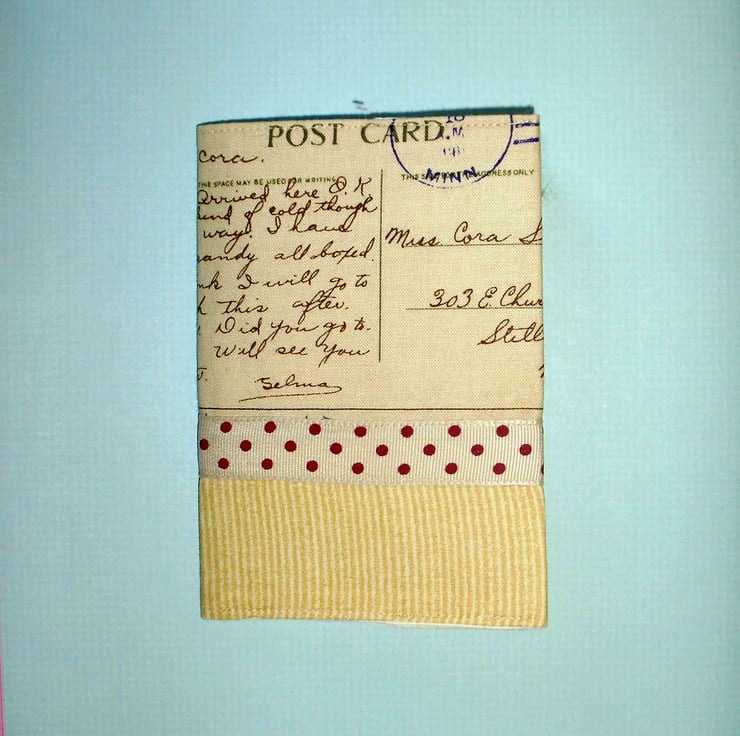 POST CARD.
Cora.
THIS SPACE MAY BE USED FOR WRITING
Arrived here O.K.
kind of cold though
way. I have
andy all boxed.
nk I will go to
h this after.
Did you go to.
Will see you
Selma
18
MINN
ADDRESS ONLY
Miss Cora S
303 E. Chur
Still